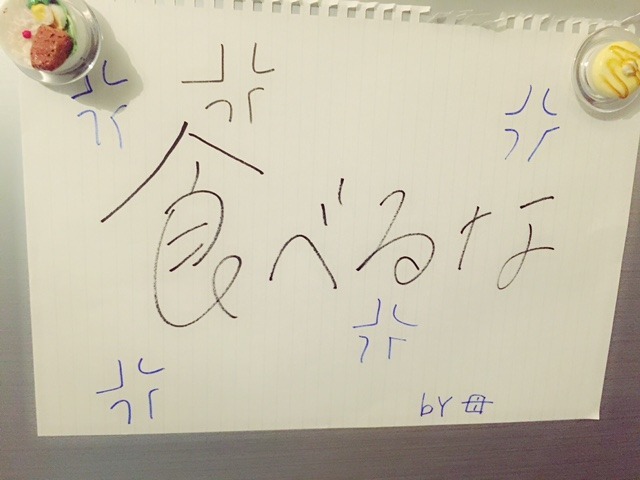 食べるな
by 母